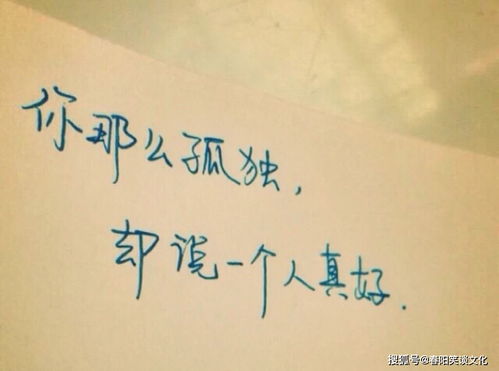 你那么孤独，
却说一个人真好．
搜狐号@春阳笑谈文化